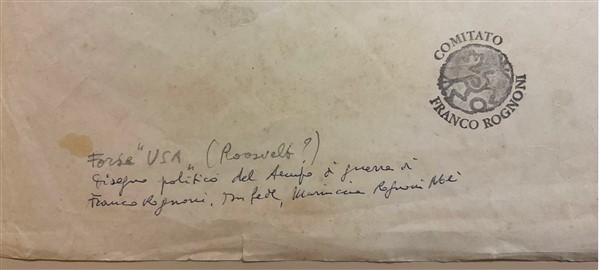 COMITATO
FRANCO ROGNONI
Forse "USA" (Roosvelt?)
Disegno "politico" del tempo di guerra di
Franco Rognoni. In fede, Mariuccia Rognoni